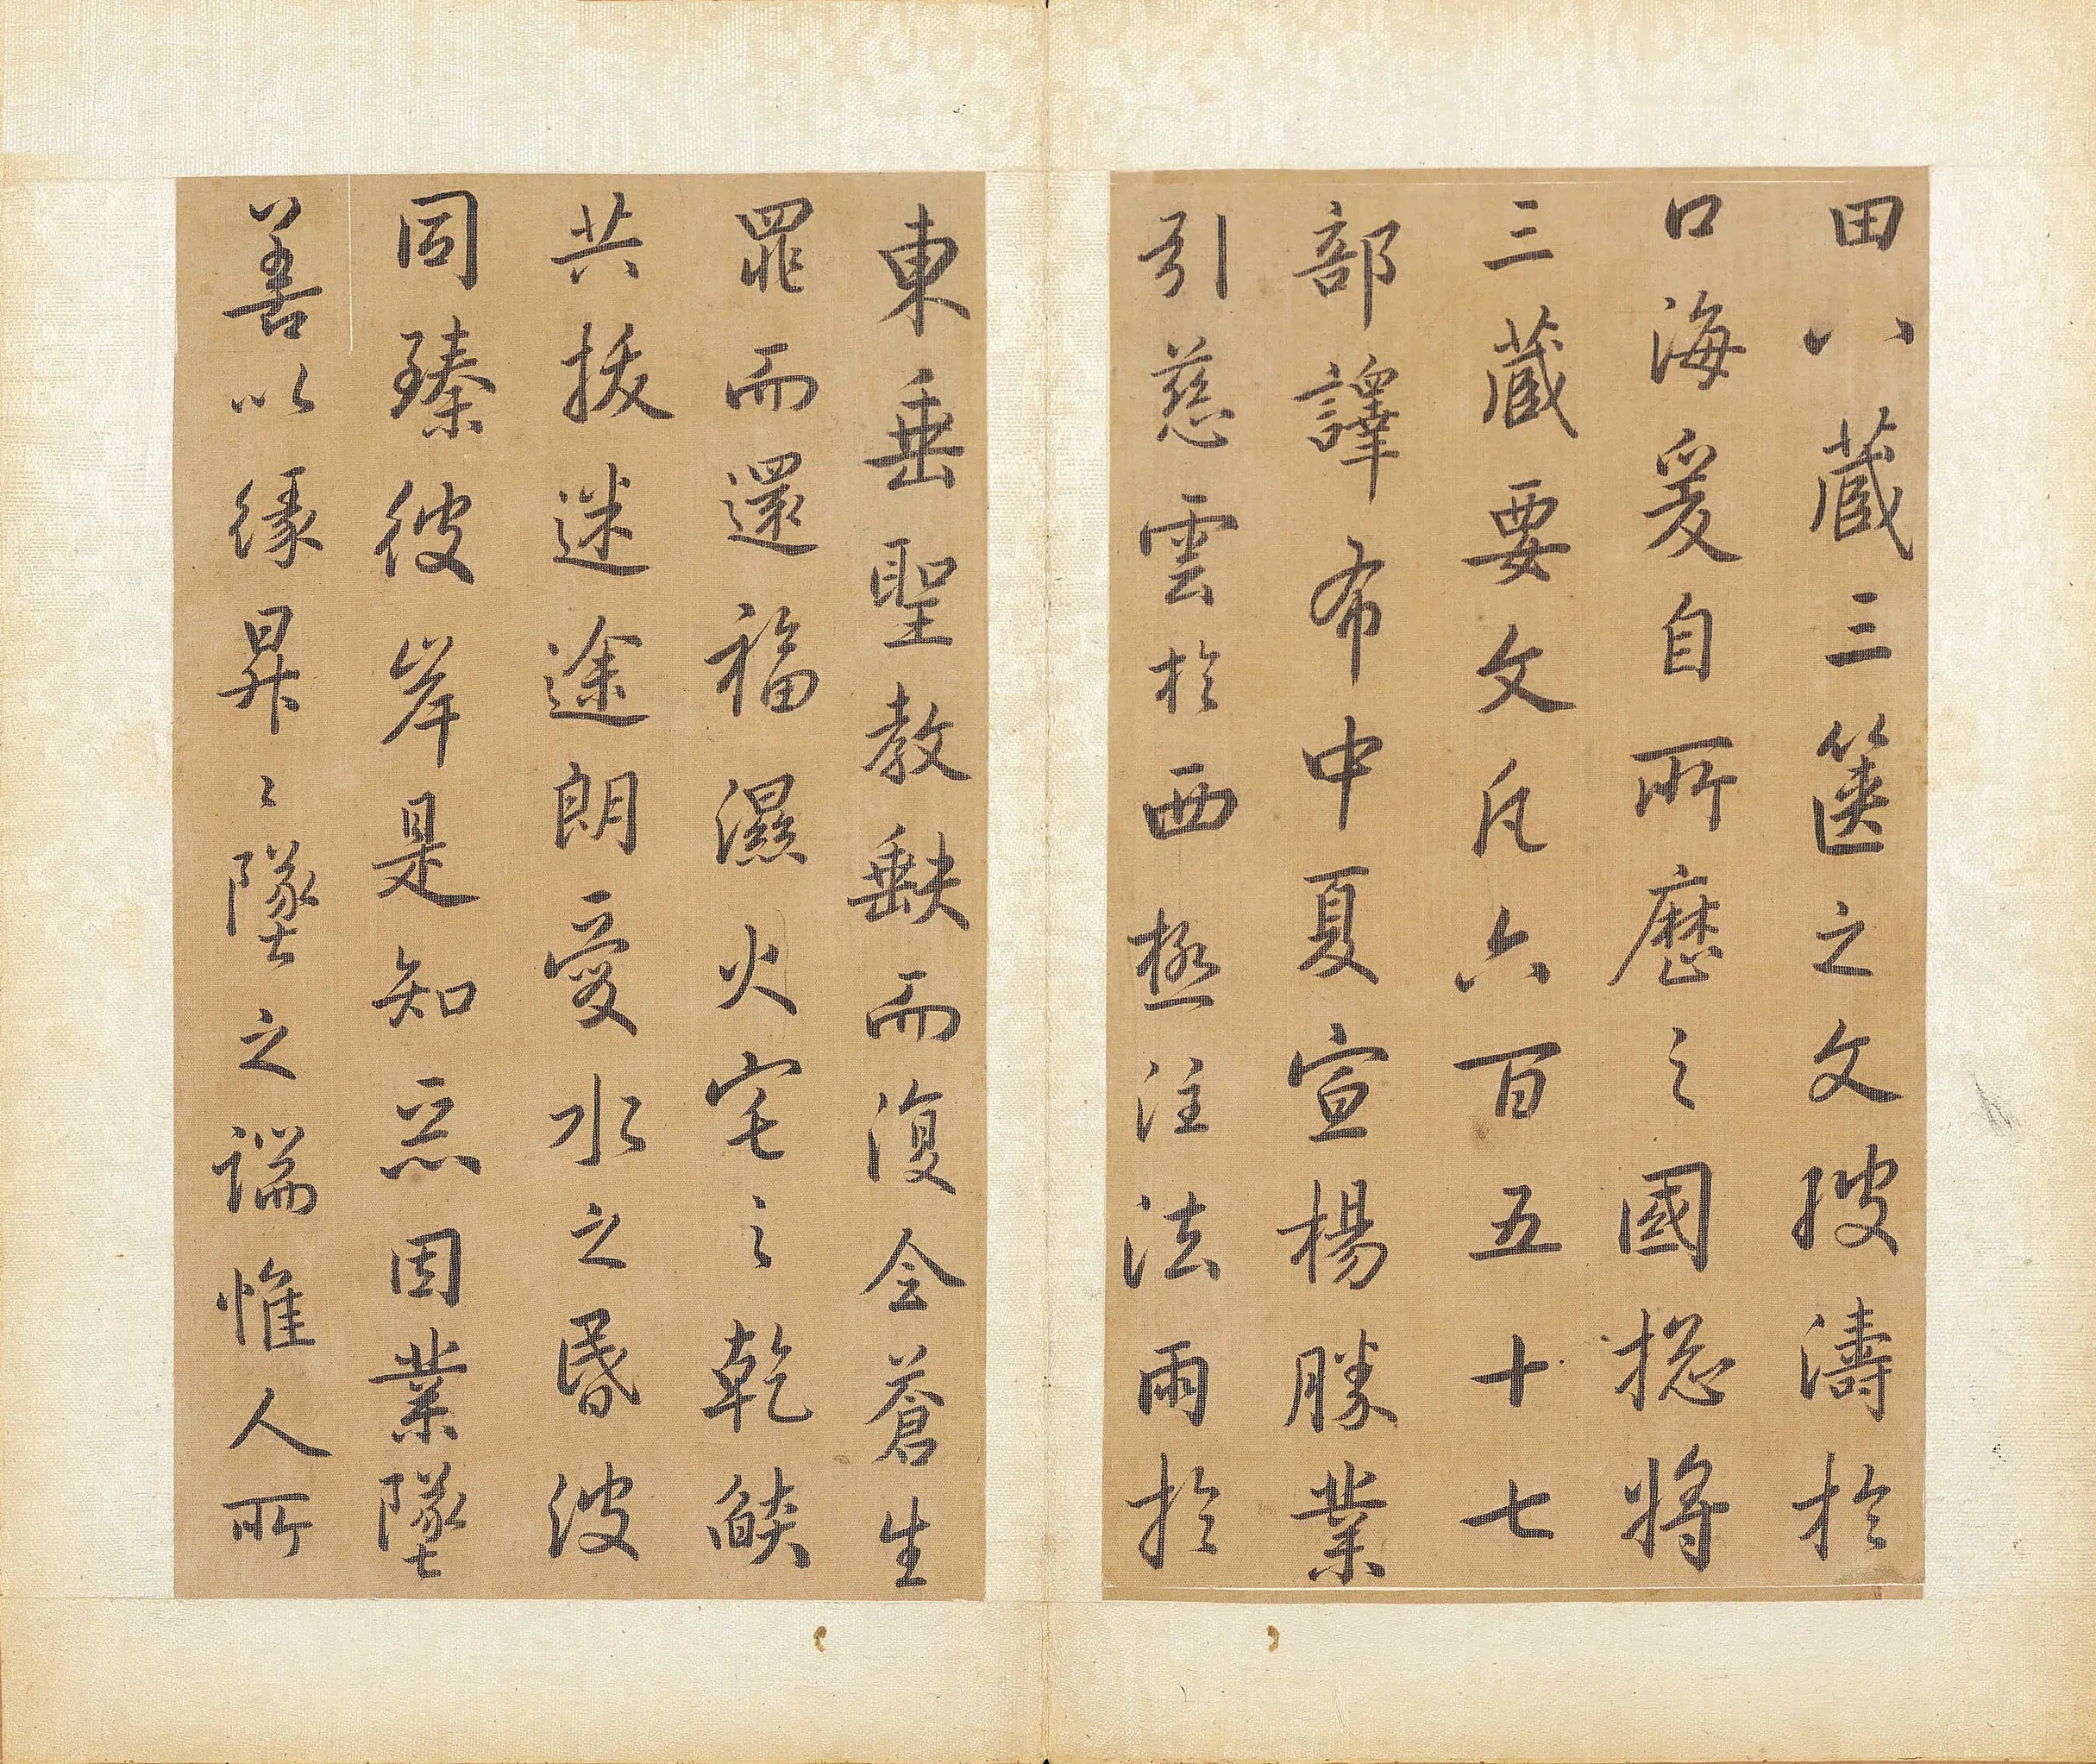 田八藏三篋之文𣹢濤於
口海爰自所歷之國揔將
三藏要文凡六百五十七
部譯布中夏宣楊勝業
引慈雲於西極注法雨於
東垂聖教缺而復全蒼生
罪而還福濕火宅之乾焰
共拔迷途朗愛水之昏波
同臻彼岸是知惡因業墜
善以緣昇〻墜之端惟人所